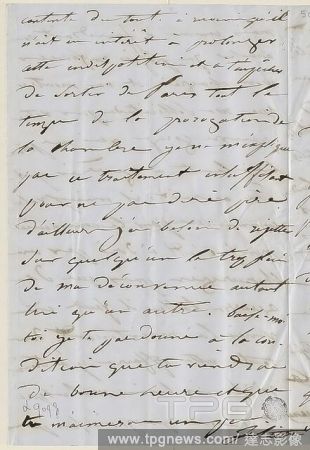 contente du tout. à moins qu'il
n'ait un intérêt à prolonger
cette indisposition et à t'empêcher
de sortir de Paris tout le
temps de la prorogation de
la chambre je ne m'explique
pas ce traitement insuffisant
pour ne pas dire pire
d'ailleurs j'ai besoin de rejeter
sur quelqu'un le trop plein
de ma déconvenue autant
lui qu'un autre. baise-moi
toi je te pardonne à la con
dition que tu viendras
de bonne heure et que
tu m'aimeras un peu
Juliette
TPG
www.tpgnews.com
達志影像